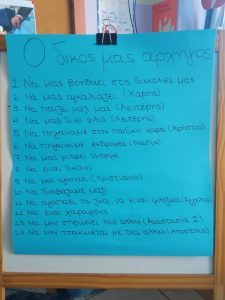 Ο δικός μας αρχηγός
1 Να μας βοηθάει στις δυσκολίες μας
2. Να μας αγκαλιάζει (Χάρης)
3. Να παίζει μαζί μας (Λευτέρης)
4. Να μας δίνει φιλιά (Λευτέρης)
5. Να πηγαίνουμε στην παιδική χαρά (Χρήστος)
6. Να πηγαίνουμε εκδρομές (Νάσια)
7. Να μας μιλάει όμορφα
8. Να είναι δίκαιος
9. Να μας αγαπάει (Χριστιάννα)
10. Να διαβάζουμε μαζί
11. Να αγαπάει τα ζώα, να είναι φιλόζωος
12. Να είναι χαρούμενος
13. Να μην σπρώχνει τους άλλους (Αναστασία Σ)
14. Να μην τσακώνεται με τους άλλους